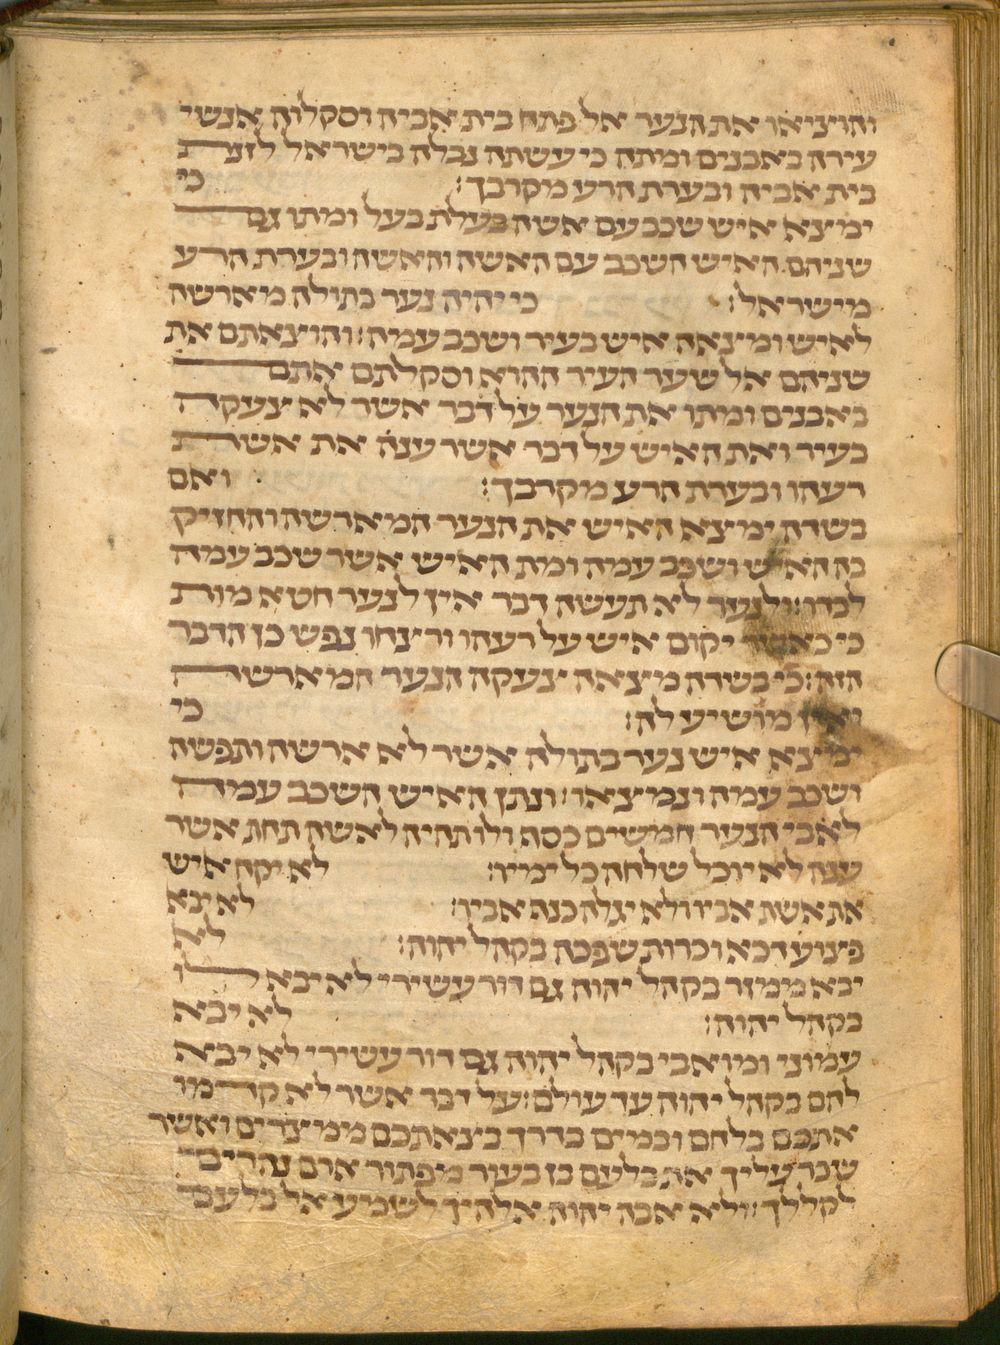 והוציאו את הנער אל פתח בית אביה וסקלוה אנשי
עירה באבנים ומתה כי עשתה נבלה בישראל לזנות
בית אביה ובערת הרע מקרבך: כי
ימצא איש שכב עם אשה בעלת בעל ומתו גם
שניהם האיש השכב עם האשה והאשה ובערת הרע
מישראל: כי יהיה נער בתולה מארשה
לאיש ומצאה איש בעיר ושכב עמה: והוצאתם את
שניהם אל שער העיר ההוא וסקלתם אתם
באבנים ומתו את הנער על דבר אשר לא צעקה
בעיר ואת האיש על דבר אשר ענה את אשת
רעהו ובערת הרע מקרבך: ואם
בשדה ימצא האיש את הנער המארשה והחזיק
בה האיש ושכב עמה ומת האיש אשר שכב עמה
לבדו: ולנער לא תעשה דבר אין לנער חטא מות
כי כאשר יקום איש על רעהו ורצחו נפש כן הדבר
הזה: כי בשדה מצאה צעקה הנער המארשה
ואין מושיע לה: כי
ימצא איש נער בתולה אשר לא ארשה ותפשה
ושכב עמה ונמצאו: ונתן האיש השכב עמה
לאבי הנער חמשים כסף ולו תהיה לאשה תחת אשר
ענה לא יוכל שלחה כל ימיו: לא יקח איש
את אשת אביו ולא יגלה כנף אביו: לא יבא
פצוע דכא וכרות שפכה בקהל יהוה: לא
יבא ממזר בקהל יהוה גם דור עשירי לא יבא לו
בקהל יהוה: לא יבא
עמוני ומואבי בקהל יהוה גם דור עשירי לא יבא
להם בקהל יהוה עד עולם: על דבר אשר לא קדמו
אתכם בלחם ובמים בדרך בצאתכם ממצרים ואשר
שכר עליך את בלעם בן בעור מפתור ארם נהרים
לקללך: ולא אבה יהוה אלהיך לשמע אל בלעם